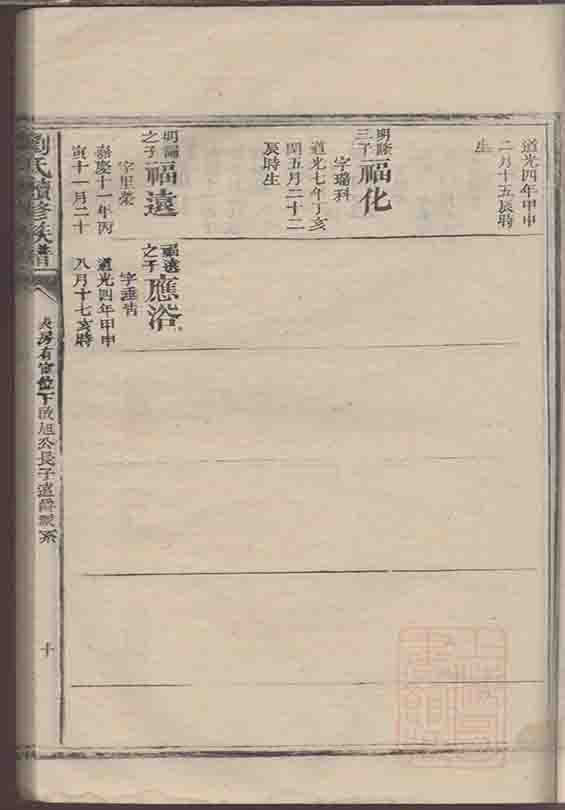 道光四年甲申
二月十五辰時
生
明
三子
福化
字瑞科
道光七年丁亥
閏五月二十二
辰時生
明
之子
福遠
字里榮
嘉慶十一年丙
寅十一月二十
福遠
之子
應浴
字垂
道光四年甲申
八月十七亥時
劉氏續修族譜
房有富位下啟旭公長子遠爵派系
十